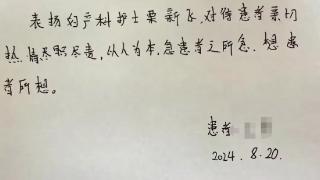 表扬妇产科护士栗新飞,对待患者亲切
热情尽职尽责,以人为本,急患者之所急,想患
者所想。
患者
2024.8.20.